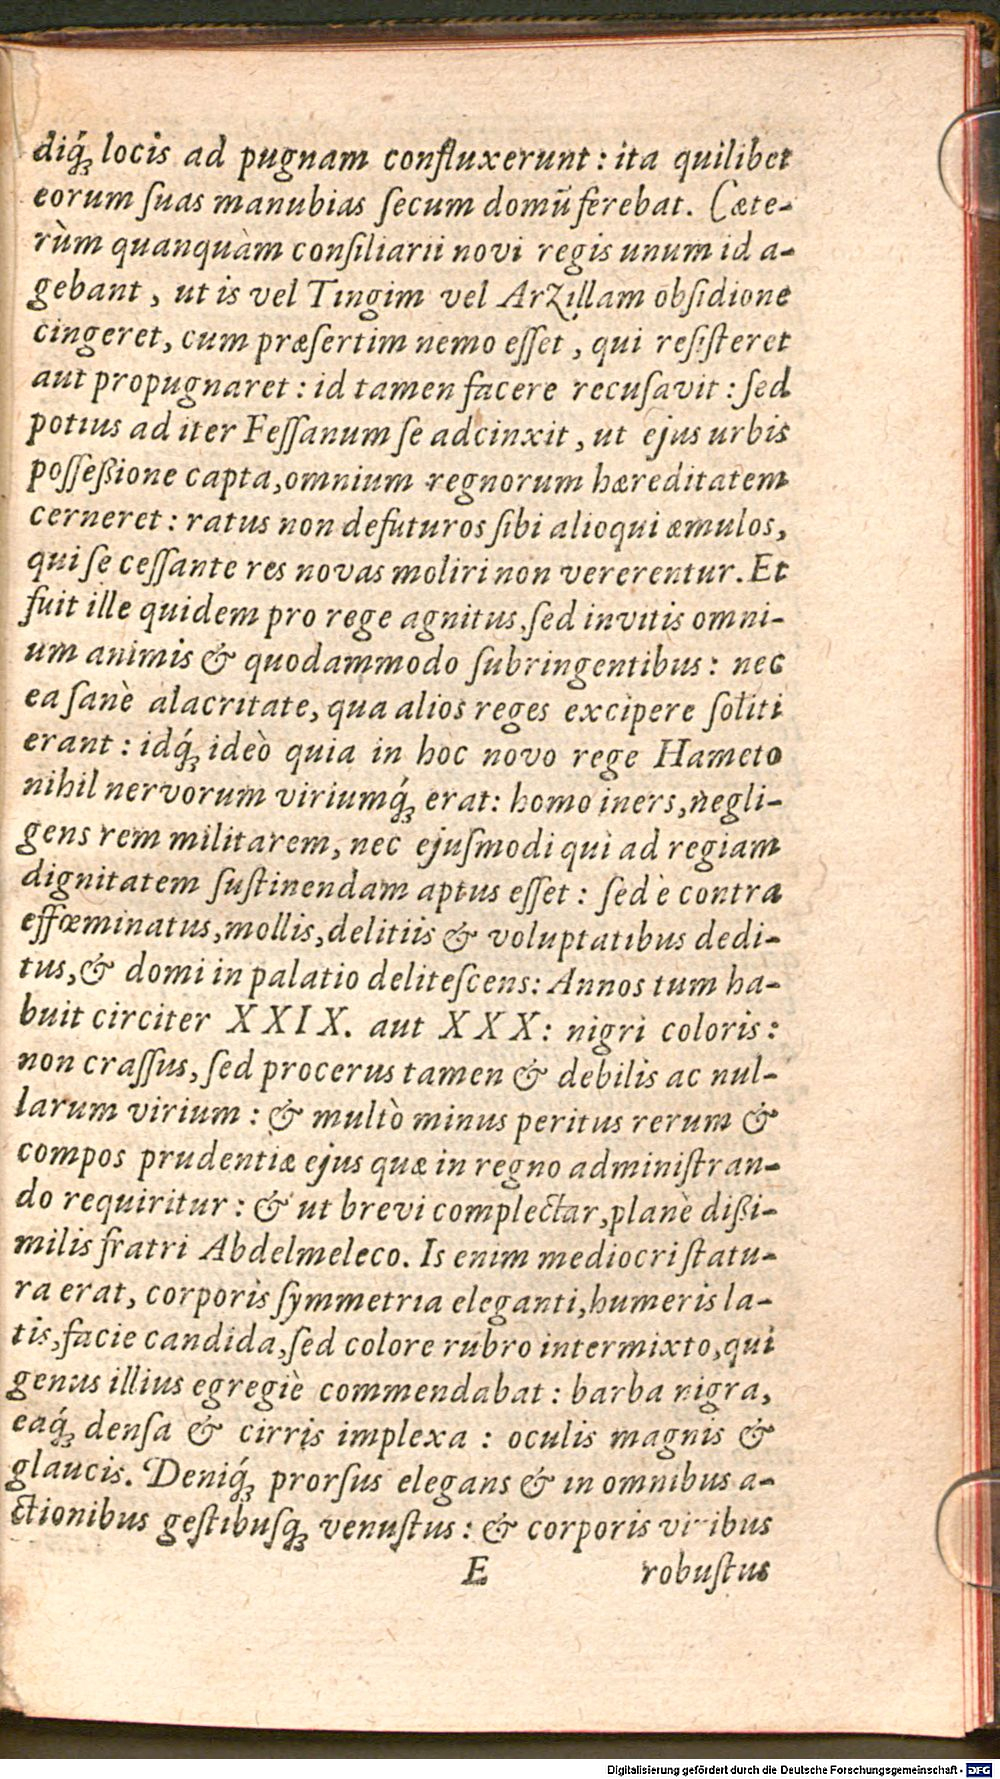 diq́ꝫ locis ad pugnam confluxerunt : ita quilibet
eorum ſuas manubias ſecum domũ ferebat. Cæte-
rùm quanquàm conſiliarii novi regis unum id a-
gebant, ut is vel Tingim vel Arzillam obſidione
cingeret, cum præſertim nemo eſſet, qui reſiſteret
aut propugnaret : id tamen facere recuſavit : ſed
potius ad iter Feſſanum ſe adcinxit, ut ejus urbis
poſſeßione capta, omnium regnorum hæreditatem
cerneret : ratus non defuturos ſibi alioqui æmulos,
qui ſe ceſſante res novas moliri non vererentur. Et
fuit ille quidem pro rege agnitus, ſed invitis omni-
um animis & quodammodo ſubringentibus : nec
ea ſanè alacritate, qua alios reges excipere ſoliti
erant : idq́ꝫ ideò quia in hoc novo rege Hameto
nihil nervorum viriumq́ꝫ erat: homo iners, negli-
gens rem militarem, nec ejuſmodi qui ad regiam
dignitatem ſuſtinendam aptus eſſet : ſed è contra
effœminatus, mollis, delitiis & voluptatibus dedi-
tus, & domi in palatio deliteſcens: Annos tum ha-
buit circiter XXIX. aut XXX: nigri coloris:
non craſſus, ſed procerus tamen & debilis ac nul-
larum virium : & multò minus peritus rerum &
compos prudentiæ ejus quæ in regno adminiſtran-
do requiritur : & ut brevi complectar, planè dißi-
milis fratri Abdelmeleco. Is enim mediocri ſtatu-
ra erat, corporis ſymmetria eleganti, humeris la-
tis, facie candida, ſed colore rubro intermixto, qui
genus illius egregiè commendabat : barba nigra,
eaq́ꝫ denſa & cirris implexa : oculis magnis &
glaucis. Deniq́ꝫ prorſus elegans & in omnibus a-
ctionibus geſtibuſqꝫ venuſtus : & corporis viribus
E robuſtus
Digitalisierung gefördert durch die Deutsche Forschungsgemeinschaft - DFG